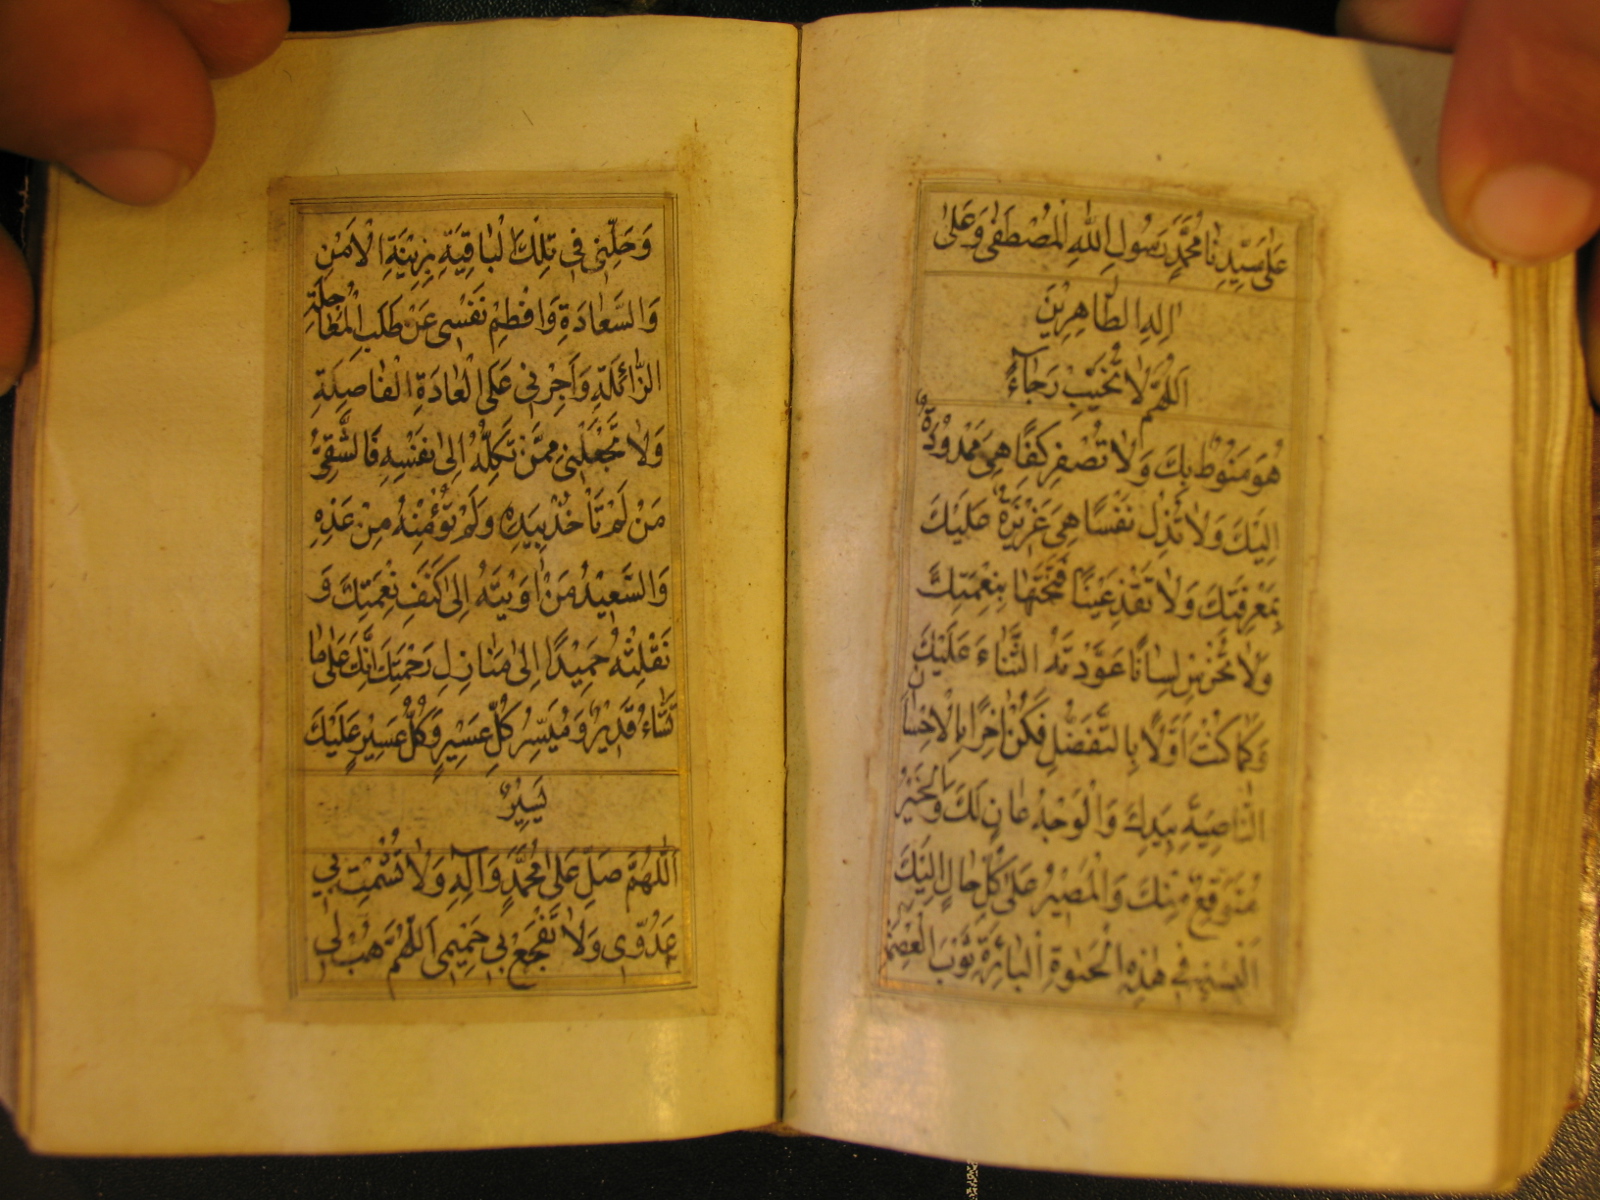 عَلٰى سَيِّدِنَا مُحَمَّدٍ رَسُولِ اللّٰهِ الْمُصْطَفٰى وَعَلٰى
اٰلِهِ الطَّاهِرِيْنَ
اَللّٰهُمَّ لَا تُخَيِّبْ رَجَآءً
هُوَ مَنُوْطٌ بِكَ وَلَا تُصْفِرْ كَفًّا هِىَ مَمْدُوْدَةٌ
اِلَيْكَ وَلَا تُذِلَّ نَفْسًا هِىَ عَزِيْزَةٌ عَلَيْكَ
بِمَعْرِفَتِكَ وَلَا تَقْذِ عَيْنًا فَتَحْتَهَا بِنِعْمَتِكَ
وَلَا تُخْرِسْ لِسَانًا عَوَّدْتَهُ الثَّنَاءَ عَلَيْكَ
وَكَمَا كُنْتَ اَوَّلًا بِالتَّفَضُّلِ فَكُنْ اٰخِرًا بِالْاِحْسَانِ
النَّاصِيَةُ بِيَدِكَ وَالْوَجْهُ عَانٍ لَكَ وَالْخَيْرُ
مُتَوَقَّعٌ مِنْكَ وَالْمَصِيْرُ عَلٰى كُلِّ حَالٍ اِلَيْكَ
اَلْبِسْنِىْ فِى هٰذِهِ الْحَيٰوةِ الْبَائِرَةِ ثَوْبَ الْعِصْمَةِ
وَحَلِّنِى فِى تِلْكَ الْبَاقِيَةِ بِزِيْنَةِ الْاَمْنِ
وَالسَّعَادَةِ وَافْطِمْ نَفْسِى عَنْ طَلَبِ الْعَاجِلَةِ
الزَّائِلَةِ وَاَجْرِنِى عَلَى الْعَادَةِ الْفَاضِلَةِ
وَلَا تَجْعَلْنِى مِمَّنْ تَكِلُهُ اِلٰى نَفْسِهِ فَالشَّقِىُّ
مَنْ لَمْ تَأْخُذْ بِيَدِهِ وَلَمْ تُؤْمِنْهُ مِنْ غَدِهِ
وَالسَّعِيْدُ مَنْ اٰوَيْتَهُ اِلٰى كَنَفِ نِعْمَتِكَ وَ
نَقَلْتَهُ حَمِيْدًا اِلٰى مَنَازِلِ رَحْمَتِكَ اِنَّكَ عَلٰى مَا
تَشَاءُ قَدِيْرٌ وَمُيَسِّرُ كُلِّ عَسِيْرٍ وَكُلُّ عَسِيْرٍ عَلَيْكَ
يَسِيْرٌ
اَللّٰهُمَّ صَلِّ عَلٰى مُحَمَّدٍ وَآلِهِ وَلَا تُشْمِتْ بِى
عَدُوِّى وَلَا تَفْجَعْ بِى حَمِيْمِى اَللّٰهُمَّ هَبْ لِى